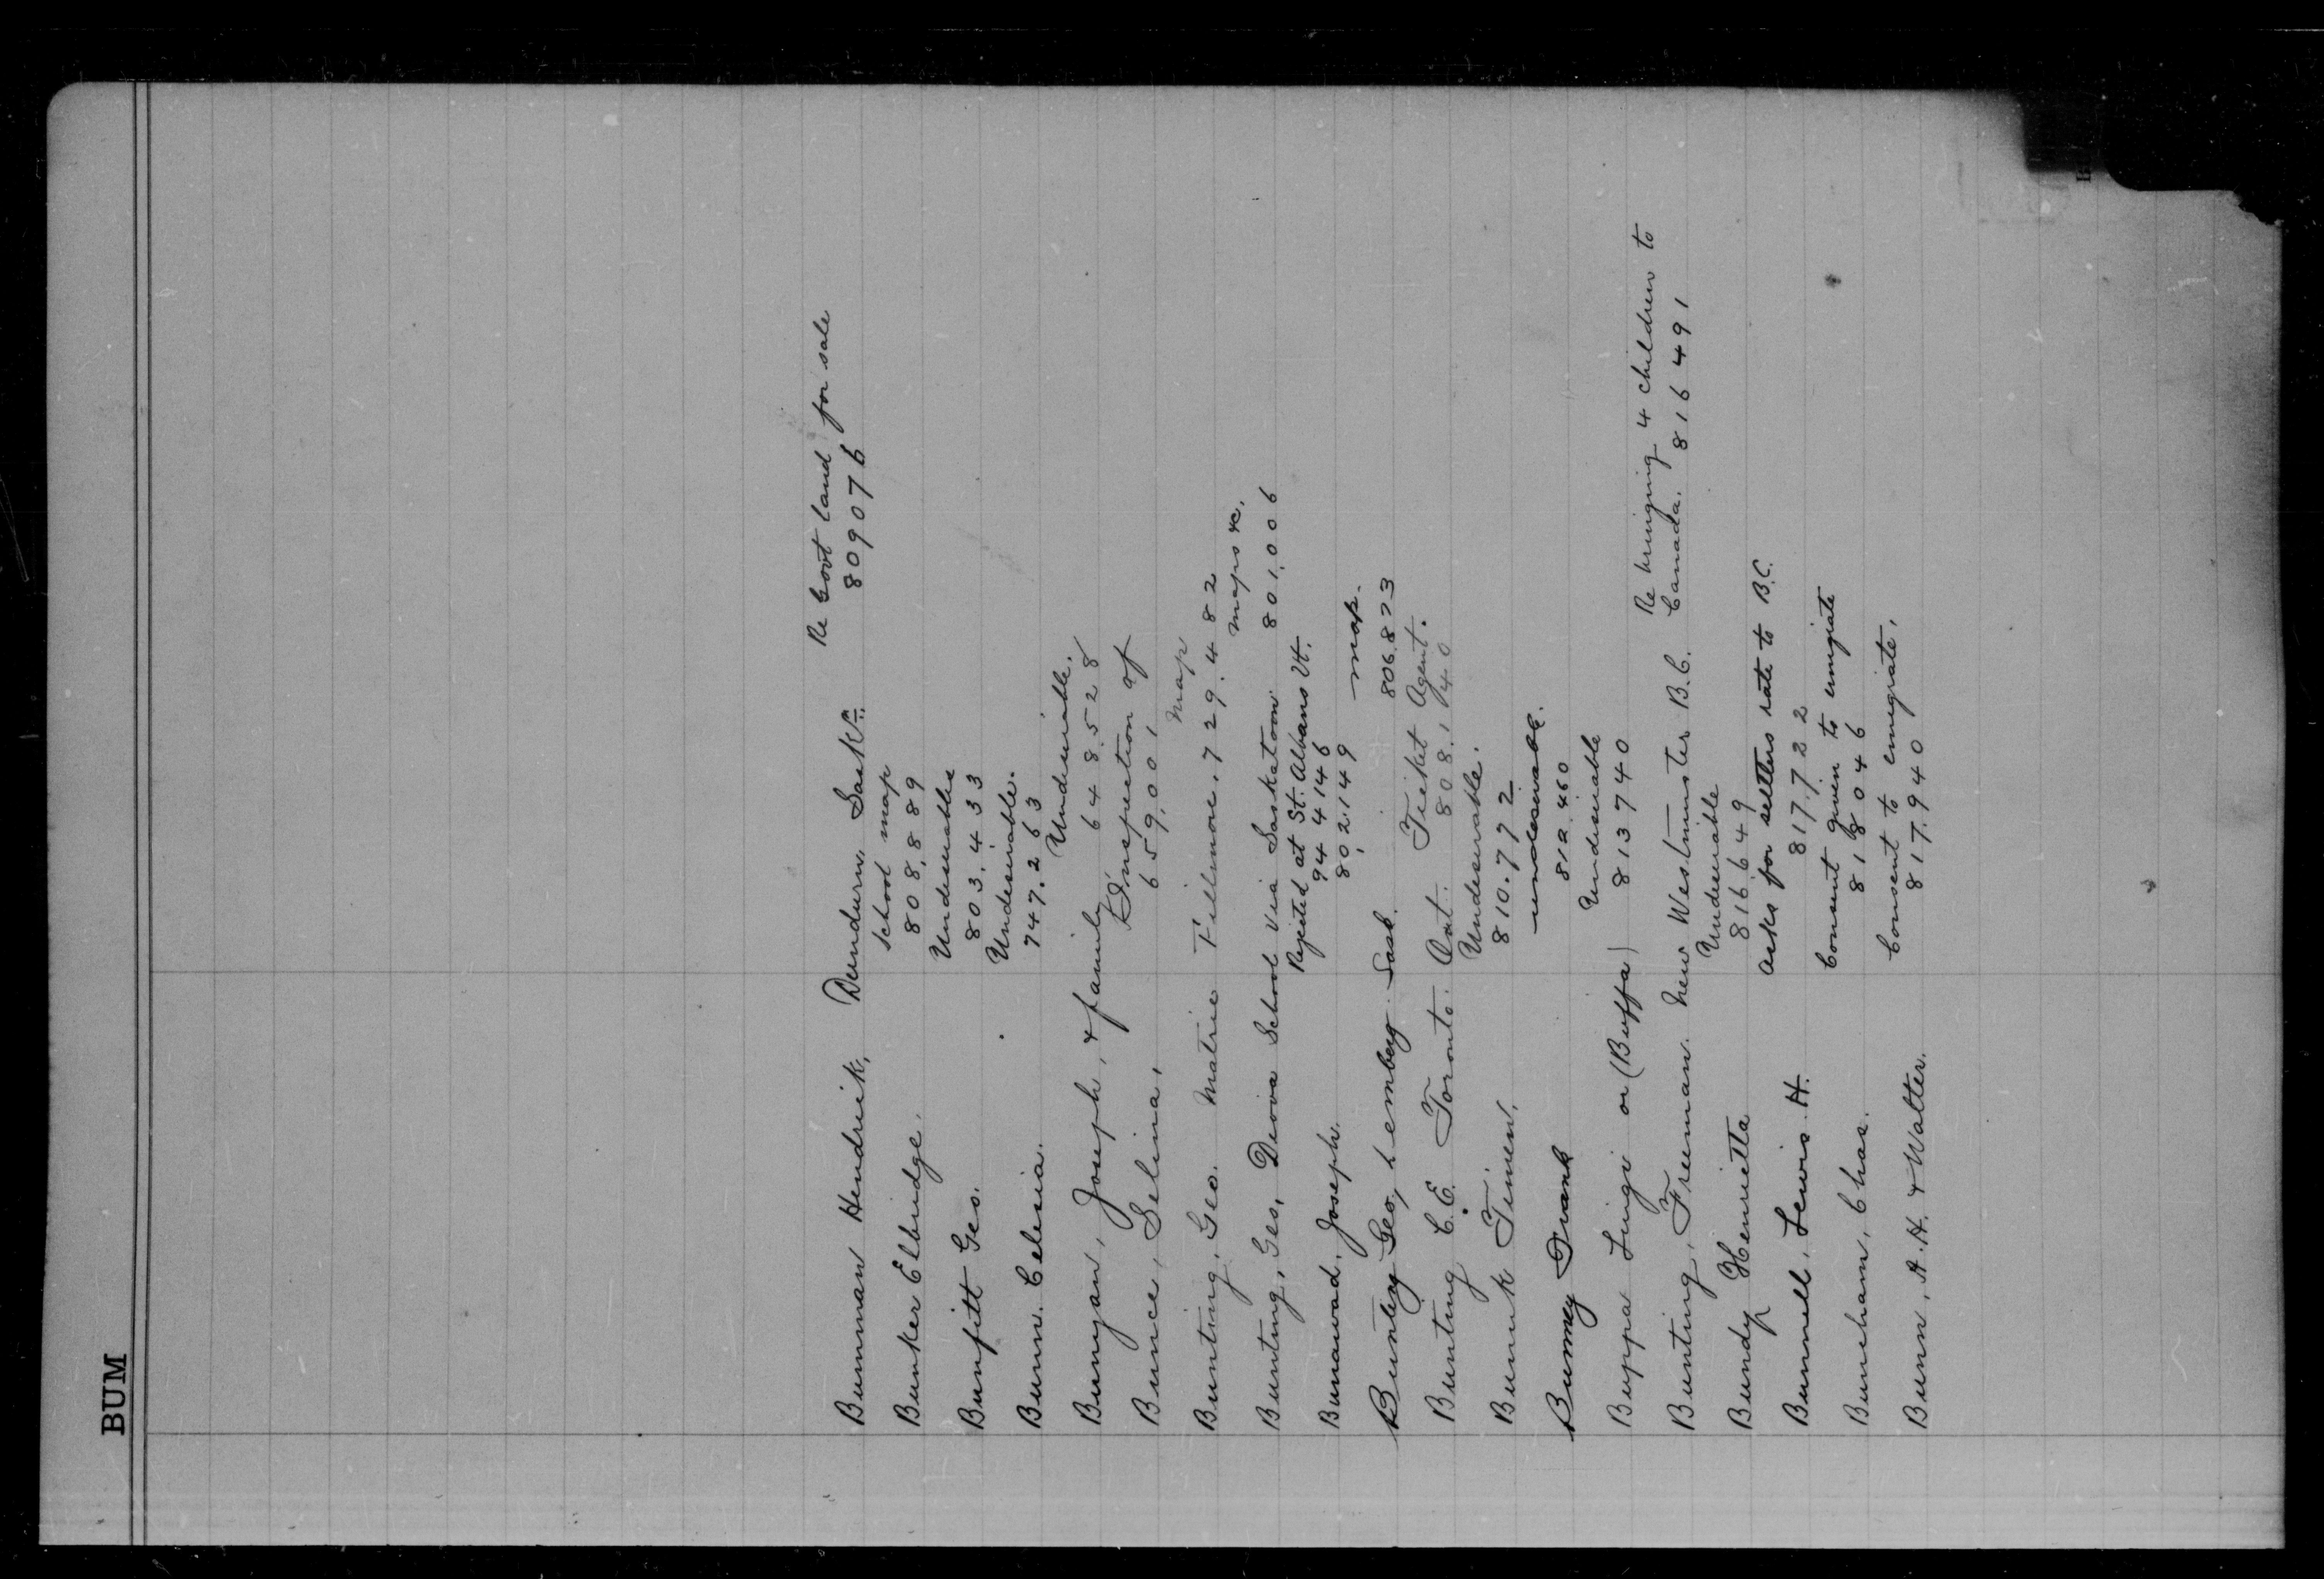 BUM
Re Govt land for sale
Bunman Hendrik, Dundurn, Saskn. 809076
school map
Bunker Elbridge. 808,889
Undesirable
Bunfitt Geo. 803,433
Undesirable.
Bunn. Celesia. 747.263
Undesirable.
Bunyan, Joseph, & family 648.528
Inspection of
Bunce, Selina, 659,001
map
Bunting, Geo. Matrie Fillmore. 729.482
maps &c.
Bunting, Geo, Devon School Via Saskatoon 801,006
Rejected at St. Albans Vt.
94 4 14 6
Bunawad. Joseph. 802,149
map.
Bunting Geo, Lemberg Sask. 806,823
Ticket Agent.
Bunting C.E. Toronto. Ont. 808.140
Undesirable.
Bunuk Timen. 810.772
undesirable.
Bunney Frank 812.460
Undesirable
Buppa Luigi or (Buffa) 813740
Re bringing 4 children to
Bunting, Freeman. New Westminster B.C. Canada. 816491
Undesirable
Bundy Henrietta 816,649
asks for settlers rate to B.C.
Bunnell, Lewis H. 817.722
Consent given to emigrate
Buncham, Chas. 818046
Consent to emigrate,
Bunn, A.H. & Walter. 817.940